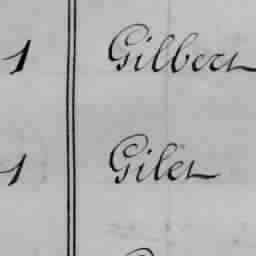 1 Gilbert
1 Gilet